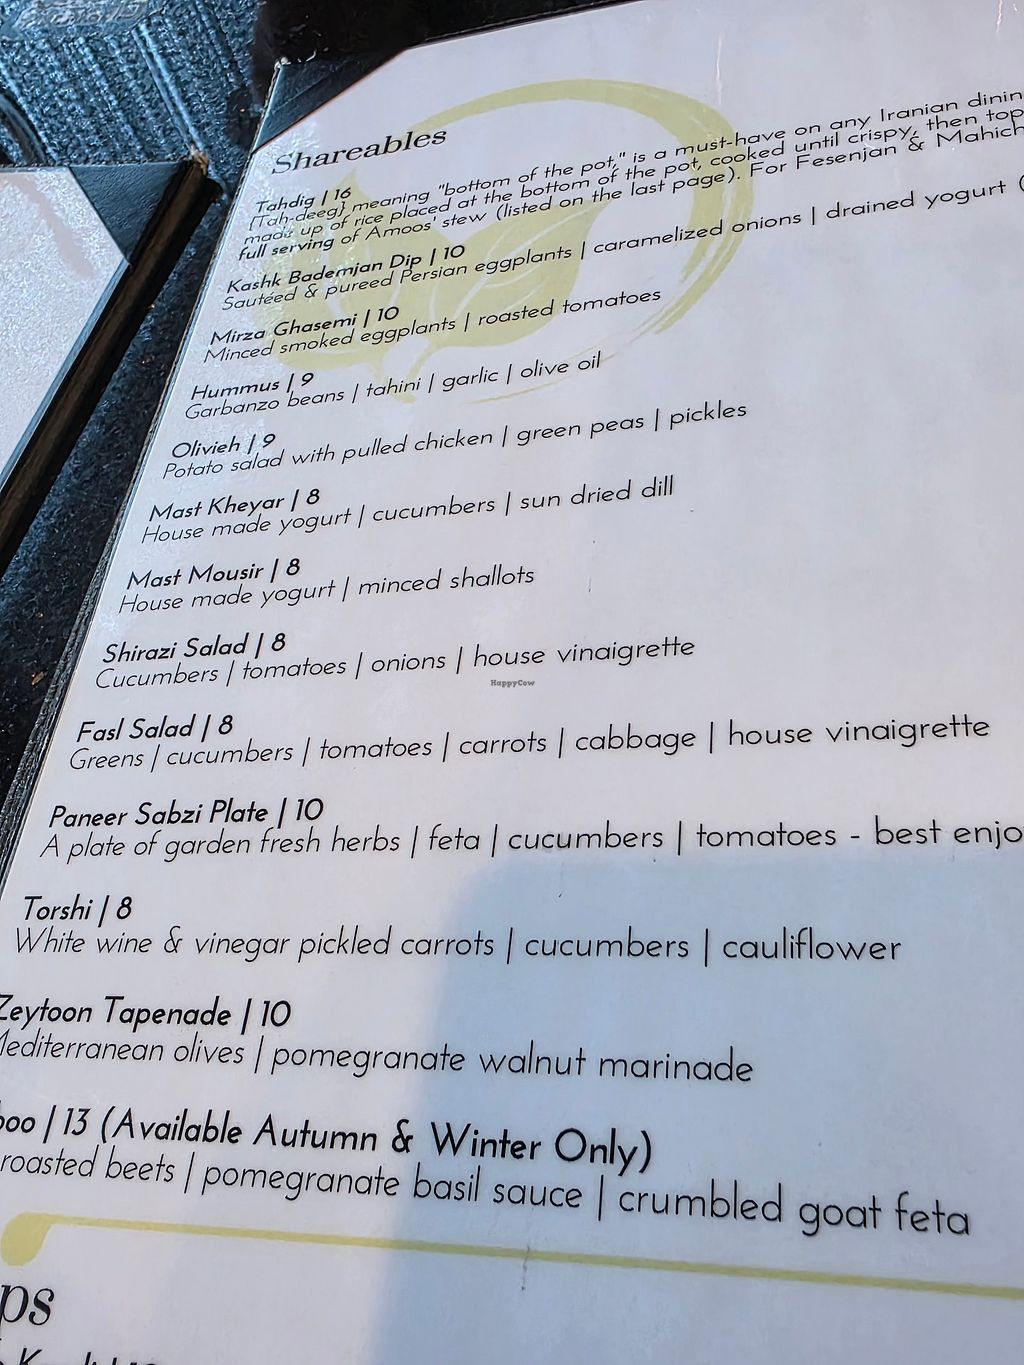 Shareables
Tahdig | 16
{Tah-deeg} meaning "bottom of the pot," is a must-have on any Iranian
made up of rice placed at the bottom of the pot, cooked until crispy, then
full serving of Amoos' stew (listed on the last page). For Fesenjan &
Kashk Bademjan Dip | 10
Sautéed & pureed Persian eggplants | caramelized onions | drained yogurt (
Mirza Ghasemi | 10
Minced smoked eggplants | roasted tomatoes
Hummus | 9
Garbanzo beans | tahini | garlic | olive oil
Olivieh | 9
Potato salad with pulled chicken | green peas | pickles
Mast Kheyar | 8
House made yogurt | cucumbers | sun dried dill
Mast Mousir | 8
House made yogurt | minced shallots
Shirazi Salad | 8
Cucumbers | tomatoes | onions | house vinaigrette
HappyCow
Fasl Salad | 8
Greens | cucumbers | tomatoes | carrots | cabbage | house vinaigrette
Paneer Sabzi Plate | 10
A plate of garden fresh herbs | feta | cucumbers | tomatoes - best enjo
Torshi | 8
White wine & vinegar pickled carrots | cucumbers | cauliflower
Zeytoon Tapenade | 10
Mediterranean olives | pomegranate walnut marinade
boo | 13 (Available Autumn & Winter Only)
roasted beets | pomegranate basil sauce | crumbled goat feta
ps